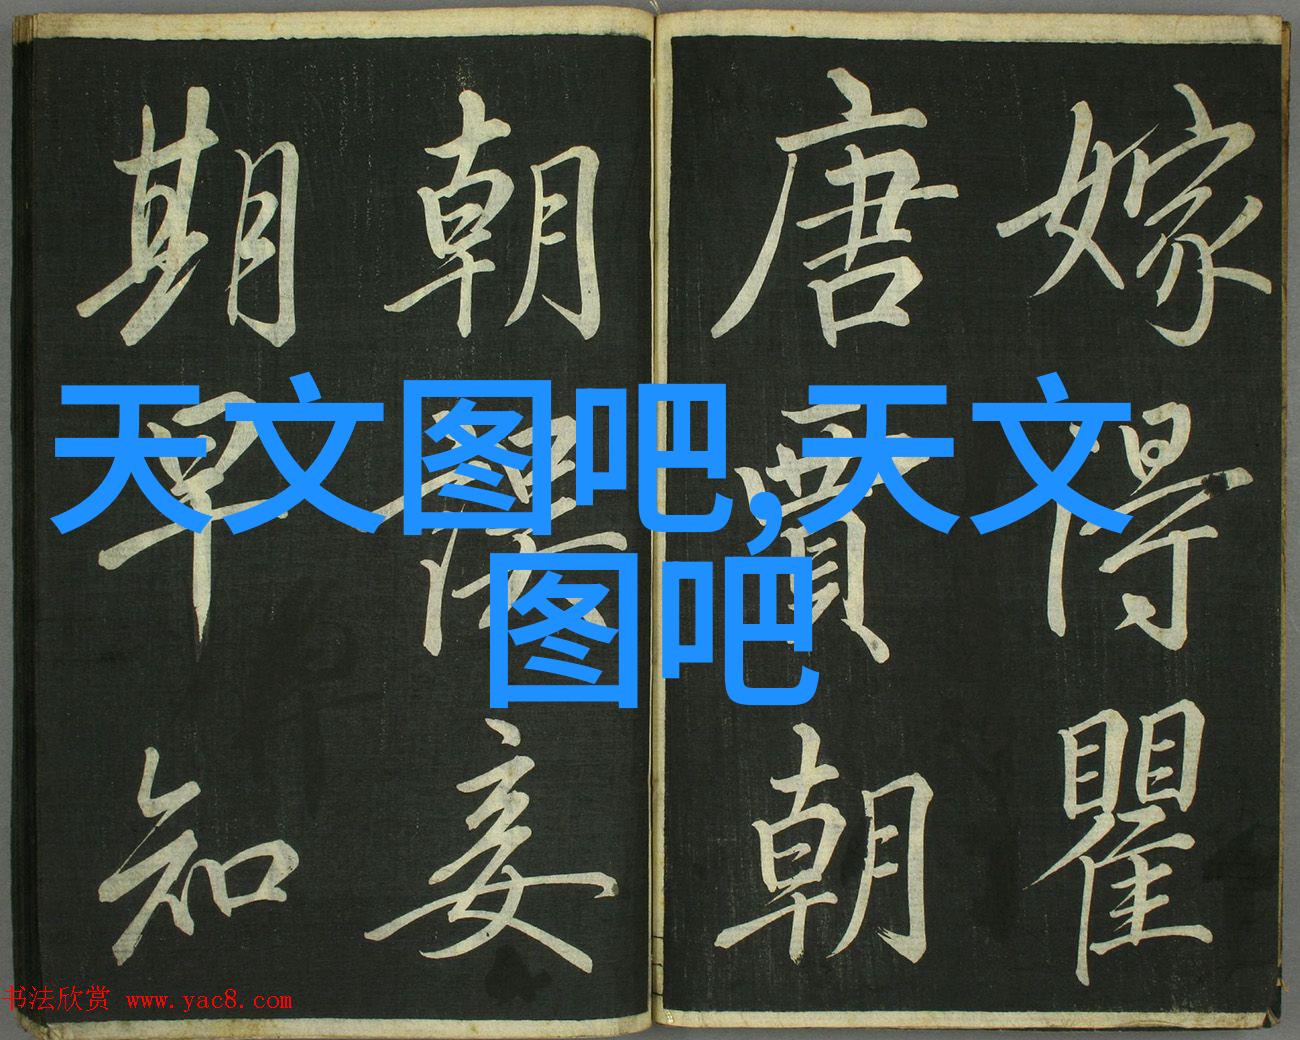 嫁得瞿
唐賈朝
朝誤妾
期早知
天文图吧,天文
图吧
书法欣赏 www.yac8.com